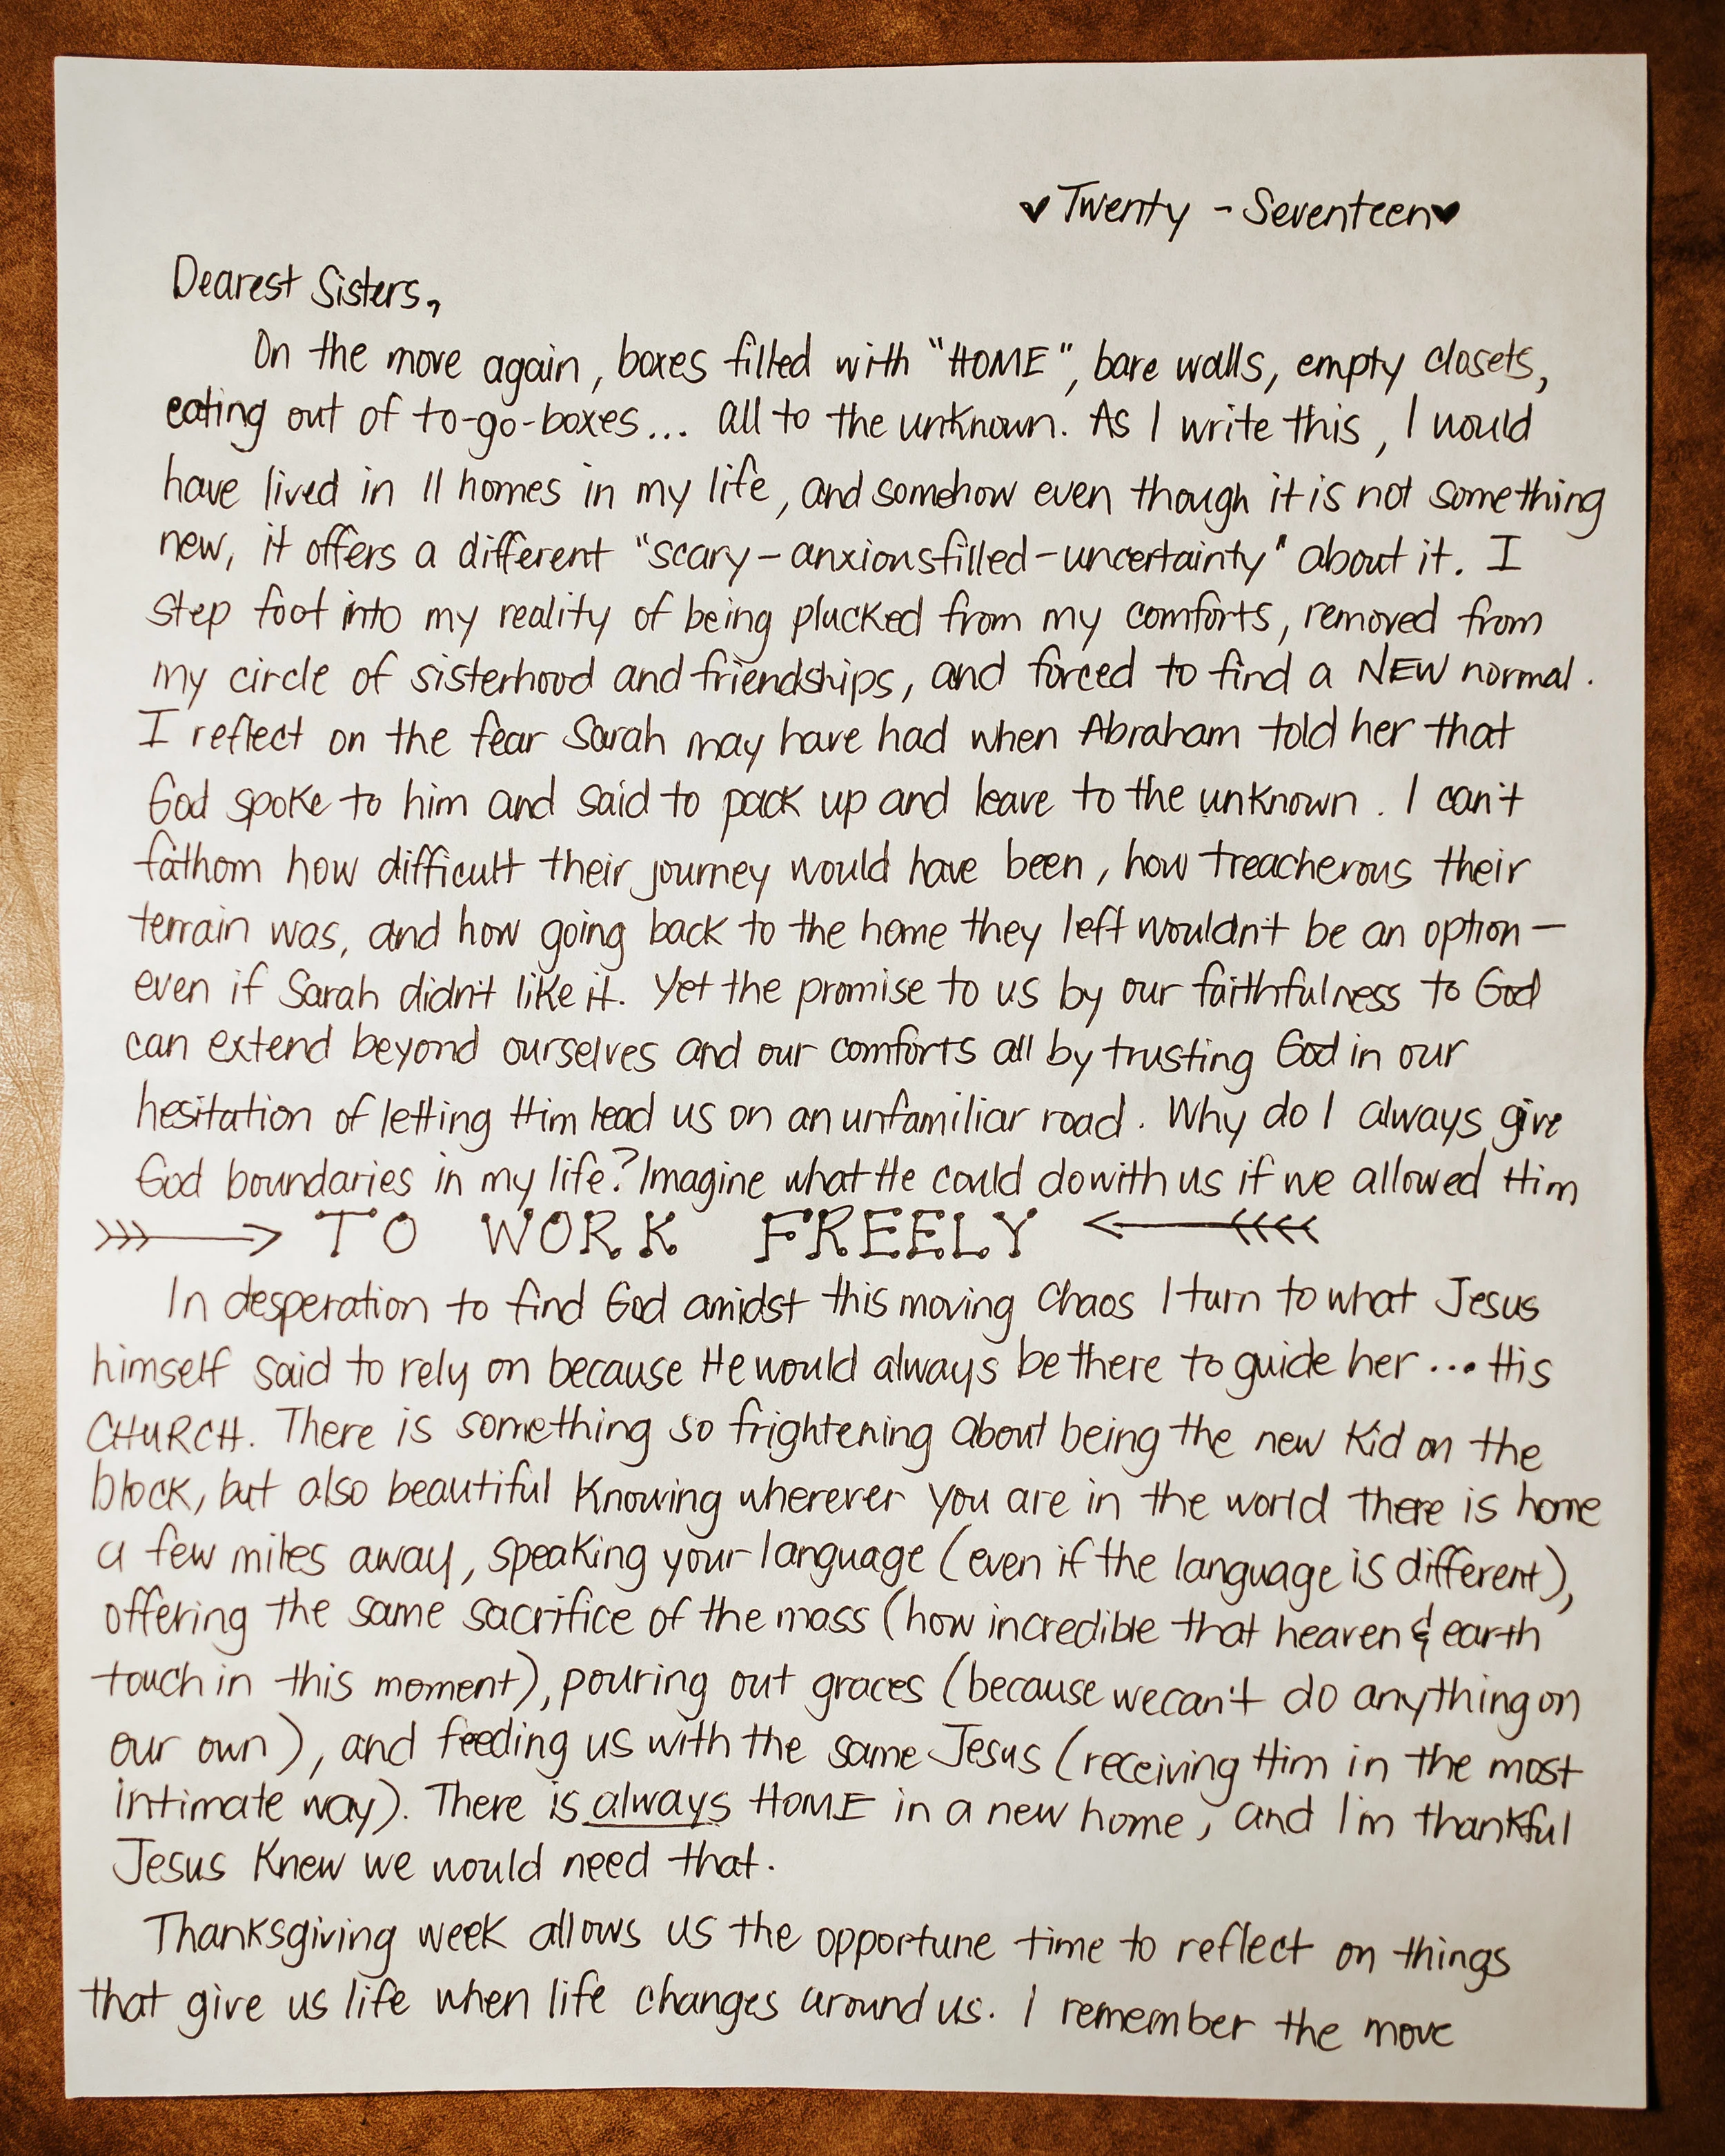 ♥Twenty - Seventeen♥
Dearest Sisters,
On the move again, boxes filled with "HOME", bare walls, empty closets,
eating out of to-go-boxes... all to the unknown. As I write this, I would
have lived in 11 homes in my life, and somehow even though it is not something
new, it offers a different "scary-anxiousfilled-uncertainty" about it. I
step foot into my reality of being plucked from my comforts, removed from
my circle of sisterhood and friendships, and forced to find a NEW normal.
I reflect on the fear Sarah may have had when Abraham told her that
God spoke to him and said to pack up and leave to the unknown. I can't
fathom how difficult their journey would have been, how treacherous their
terrain was, and how going back to the home they left wouldn't be an option—
even if Sarah didn't like it. Yet the promise to us by our faithfulness to God
can extend beyond ourselves and our comforts all by trusting God in our
hesitation of letting Him lead us on an unfamiliar road. Why do I always give
God boundaries in my life? Imagine what He could do with us if we allowed Him
TO WORK FREELY
In desperation to find God amidst this moving chaos I turn to what Jesus
himself said to rely on because He would always be there to guide her... His
CHURCH. There is something so frightening about being the new kid on the
block, but also beautiful knowing wherever you are in the world there is home
a few miles away, speaking your language (even if the language is different),
offering the same sacrifice of the mass (how incredible that heaven & earth
touch in this moment), pouring out graces (because we can't do anything on
our own), and feeding us with the same Jesus (receiving Him in the most
intimate way). There is always HOME in a new home, and I'm thankful
Jesus knew we would need that.
Thanksgiving week allows us the opportune time to reflect on things
that give us life when life changes around us. I remember the move